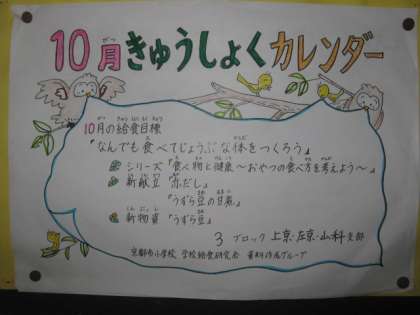 10月きゅうしょくカレンダー
10月の給食目標
「なんでも食べてじょうぶな体をつくろう」
シリーズ「食べ物と健康～おやつの食べ方を考えよう～」
新献立「赤だし」
「うずら豆の甘煮」
新物資「うずら豆」
3ブロック 上京・左京・山科支部
京都市小学校 学校給食研究会 資料作成グループ